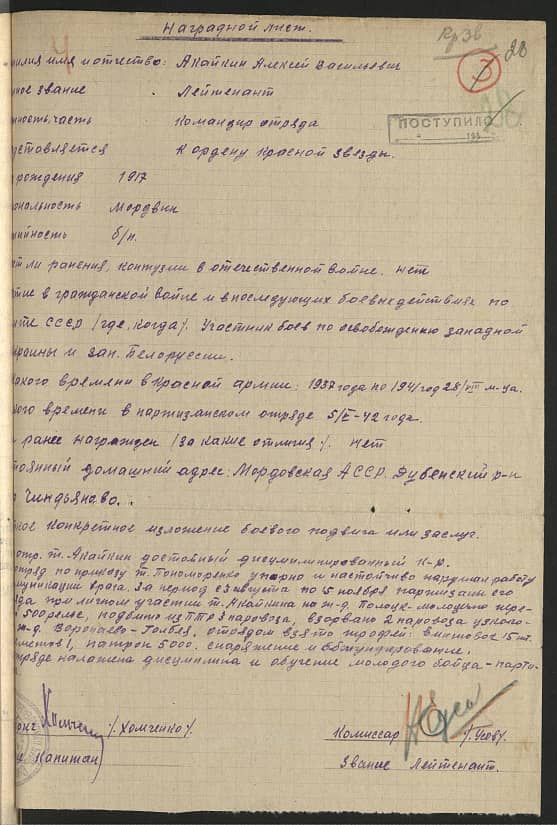 Наградной лист.
РузВ
3 28
милия имя и отчество: Акайкин Алексей Васильевич
нное звание Лейтенант
ность, часть Командир отряда
ПОСТУПИЛО
194
дставляется К ордену Красной звезды.
рождения 1917
ональность Мордвин
тийность б/п.
ет ли ранения, контузии в отечественной войне. Нет
стие в гражданской войне и в последующих боевых действиях по
ите СССР /где, когда/. Участник боев по освобождению западной
краины и зап. Белоруссии.
какого времени в Красной армии: 1937 года по 1941 год 28/VIII м-ца.
кого времени в партизанском отряде 5/V-42 года.
ранее награжден /за какие отличия/. Нет
тоянный домашний адрес: Мордовская АССР. Дубенский р-н
Чиндьяново.
ное конкретное изложение боевого подвига или заслуг.
отр. т. Акайкин достойный дисциплинированный к-р.
тряд по приказу т. Пономоренко упорно и настойчиво нарушал работу
муникации врага. За период с 3 августа по 15 ноября партизаны его
да при личном участии т. Акайкина на ж-д. Полоцк-Молодечно
500 рельс, подбито из ПТР 3 паровоза, взорвано 2 паровоза узкого-
ж-д. Воропаево- отрядом взято трофей: винтовок 15 шт.
метов 1, патрон 5000. снаряжение и обмундирование.
тряде налажена дисциплина и обучение молодого бойца-парти-
/Хомченко/. Комиссар /Усов/.
Капитан/ Звание Лейтенант.